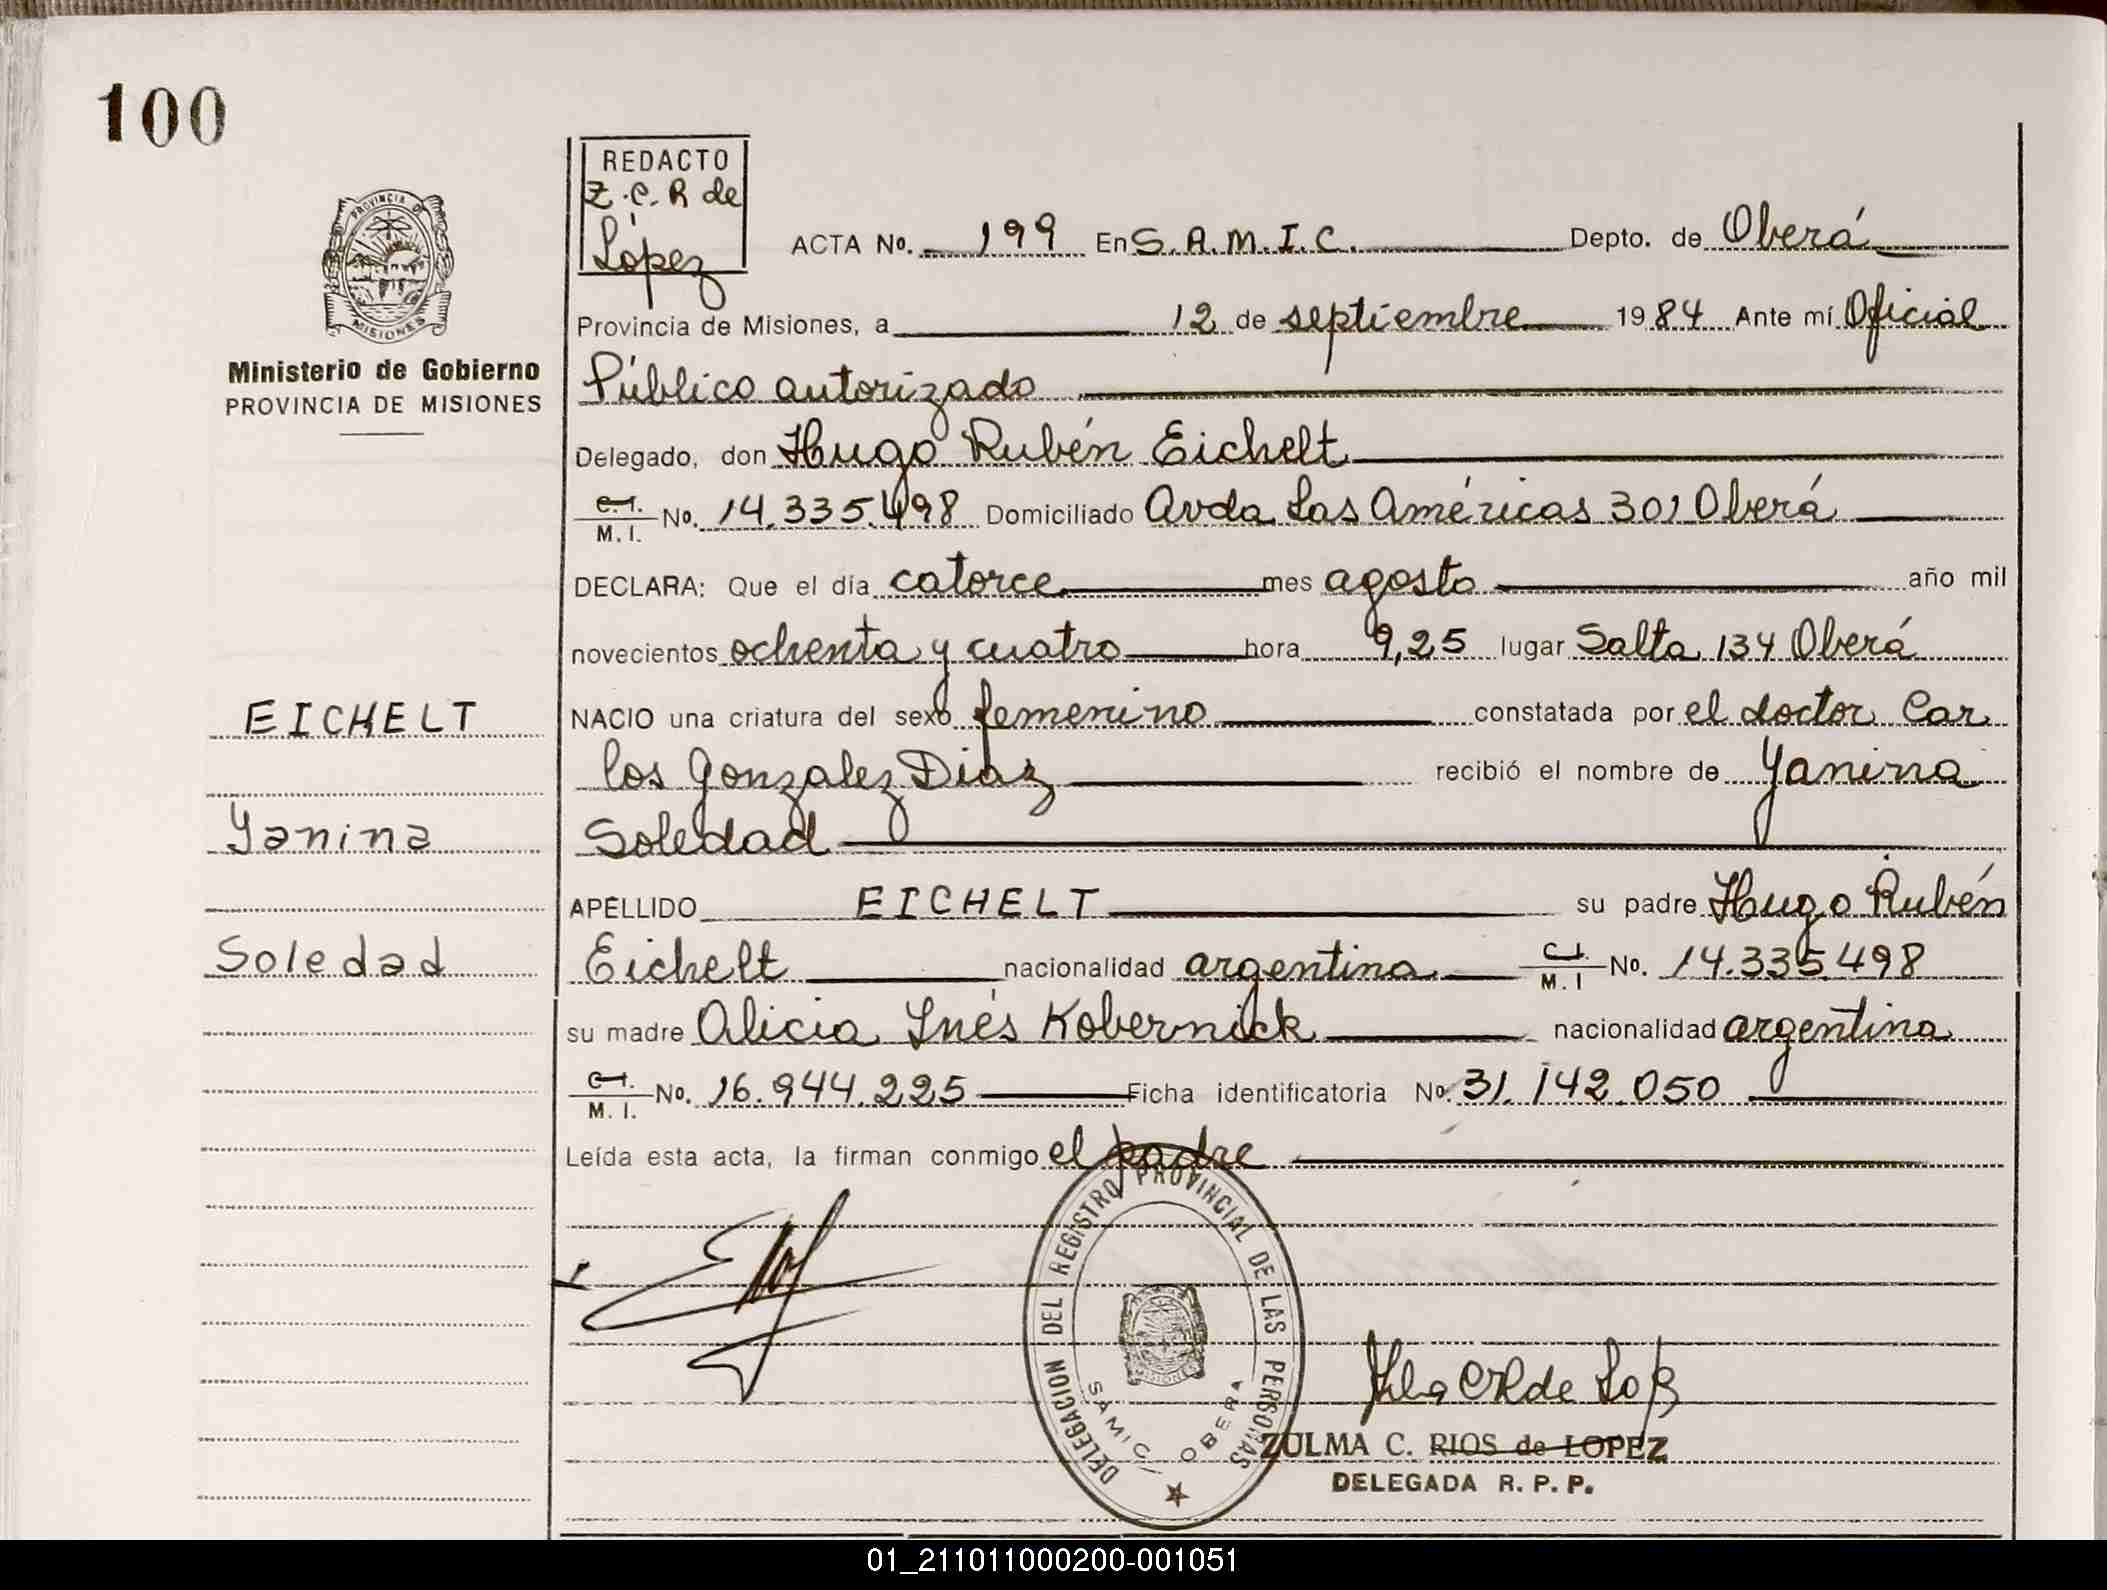 100
REDACTO
Z.C.R de
López
PROVINCIA DE
MISIONES
Ministerio de Gobierno
PROVINCIA DE MISIONES
ACTA No. 199 En S.A.M.I.C. Depto. de Oberá
Provincia de Misiones, a 12 de septiembre 1984 Ante mí Oficial
Público autorizado
Delegado, don Hugo Rubén Eichelt
C.I. M.I. No. 14.335.498 Domiciliado Avda Las Américas 301 Oberá
DECLARA: Que el día catorce mes agosto año mil
novecientos ochenta y cuatro hora 9,25 lugar Salta 134 Oberá
NACIO una criatura del sexo femenino constatada por el doctor Car
los Gonzalez Diaz recibió el nombre de Yanina
Soledad
APELLIDO EICHELT su padre Hugo Rubén
Eichelt nacionalidad argentina C.I. M.I No. 14.335.498
su madre Alicia Inés Kobernick nacionalidad argentina
C.I. M.I. No. 16.944.225 Ficha identificatoria No. 31.142.050
Leída esta acta, la firman conmigo el padre
EICHELT
Yanina
Soledad
DELEGACION DEL REGISTRO PROVINCIAL DE LAS PERSONAS
SAMIC OBERA
MISIONES
ZULMA C. RIOS de LOPEZ
DELEGADA R. P. P.
01_211011000200-001051